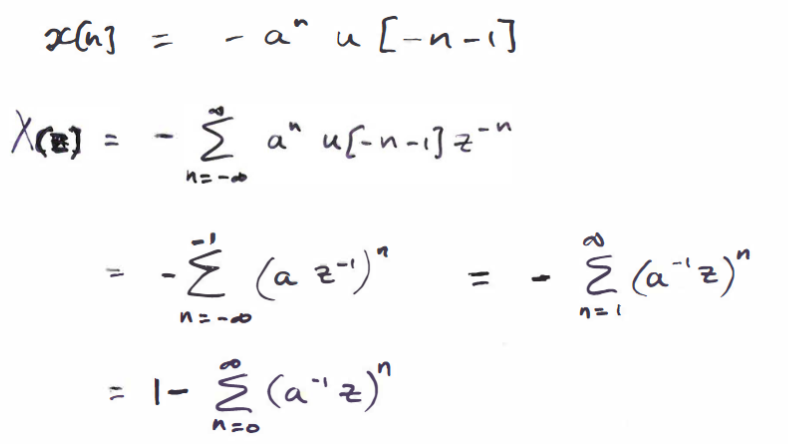 x[n] = - aⁿ u[-n-1]
X(z) = - ∑_{n=-∞}^{∞} aⁿ u[-n-1] z⁻ⁿ
= - ∑_{n=-∞}^{-1} (a z⁻¹)ⁿ = - ∑_{n=1}^{∞} (a⁻¹z)ⁿ
= 1 - ∑_{n=0}^{∞} (a⁻¹z)ⁿ